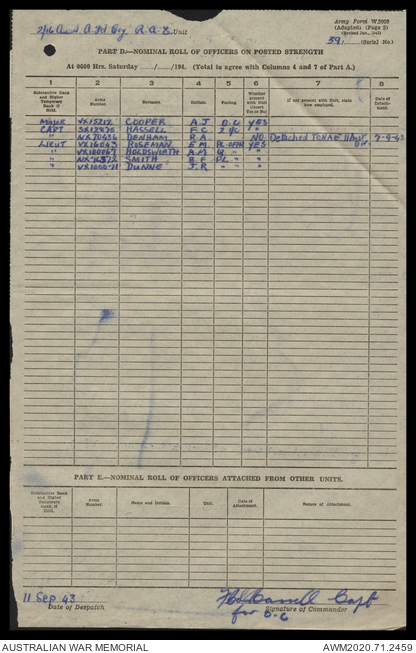 Army Form W.3008
(Adapted) (Page 3)
(Revised Jan., 1943)
39, (Serial No.)
2/16 Aust. A. Fd Coy. R.A.E. Unit
PART D.—NOMINAL ROLL OF OFFICERS ON POSTED STRENGTH
At 0600 Hrs. Saturday / /194 . (Total to agree with Columns 4 and 7 of Part A.)
1 2 3 4 5 6 7 8
Substantive Rank and Higher Temporary Rank if Held. Army Number. Surname. Initials. Posting. Whether present with Unit (Insert Yes or No) If not present with Unit, state how employed. Date of Detachment.
Major VX15212 COOPER A.J O.C YES
CAPT SX12436 HASSELL F.C 2 i/c "
" NX70436 DENHAM R.A. NO Detached 7-9-43
LIEUT VX16043 ROSEMAN E.M. YES
" VX100067 HOLDSWORTH A.M " "
" NX76372 SMITH B.F PL " "
" VX100071 DUNNE J.R " " "
PART E.—NOMINAL ROLL OF OFFICERS ATTACHED FROM OTHER UNITS.
Substantive Rank and Higher Temporary Rank, if Held. Army Number. Name and Initials. Unit. Date of Attachment. Nature of Attachment.
11 Sep 43
Capt
Date of Despatch Signature of Commander
for O.C
AUSTRALIAN WAR MEMORIAL AWM2020.71.2459